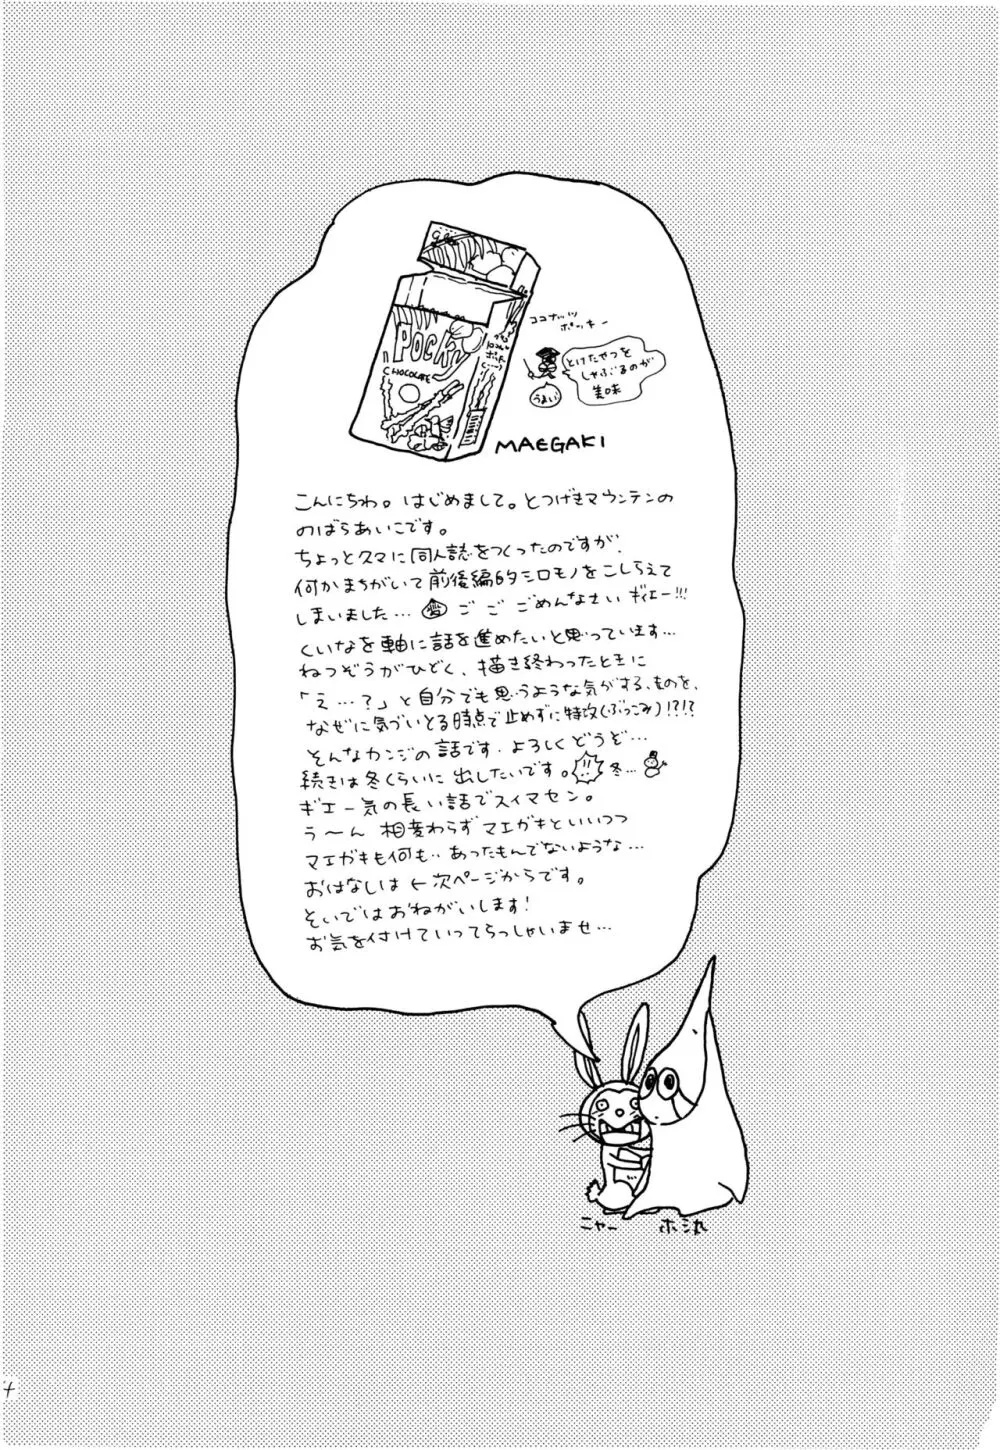 glico
POCKY
CHOCOLATE
ココナッツ
ポッキー
とけたやつを
しゃぶるのが
美味
うまい
MAEGAKI
こんにちわ。はじめまして。とつげきマウンテンの
のばらあいこです。
ちょっとクマに同人誌をつくったのですが、
何かまちがいて前後編的シロモノをこしらえて
しまいました… ご ご ごめんなさい ギィエー!!!
くいなを軸に話を進めたいと思っています…
ねつぞうがひどく、描き終わったときに
「え…?」と自分でも思うような気がする、ものを、
なぜに気づいとる時点で止めずに特攻(ぶっこみ)!?!?
そんなカンジの話です。よろしくどうぞ…
続きは冬くらいに出したいです。冬…
ギエー気の長い話でスイマセン。
う〜ん 相変わらずマエガキといいつつ
マエガキも何も‥あったもんでないような…
おはなしは←次ページからです。
そいではおねがいします!
お気を付けていってらっしゃいませ…
ニャー
ホシ丸
4